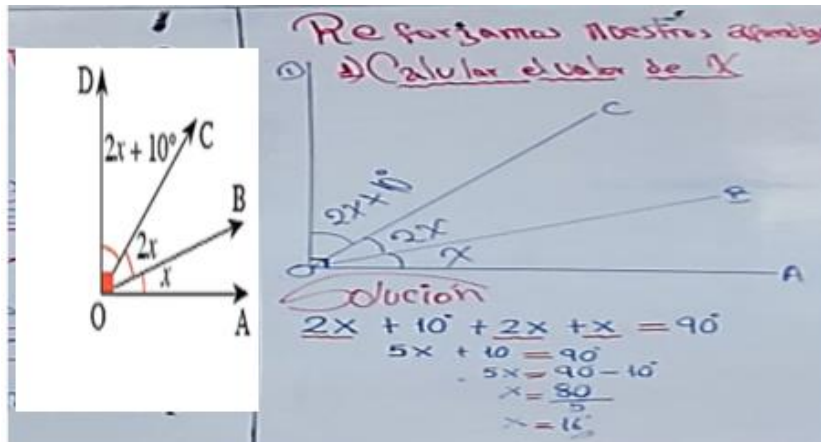 D
2x + 10°
C
B
2x
x
O
A
Reforzamos nuestros
1) Calular el valor de X
C
2x + 10°
B
2x
x
A
Solución
2x + 10° + 2x + x = 90°
5x + 10 = 90°
5x = 90 - 10°
x = 80
5
x = 16°